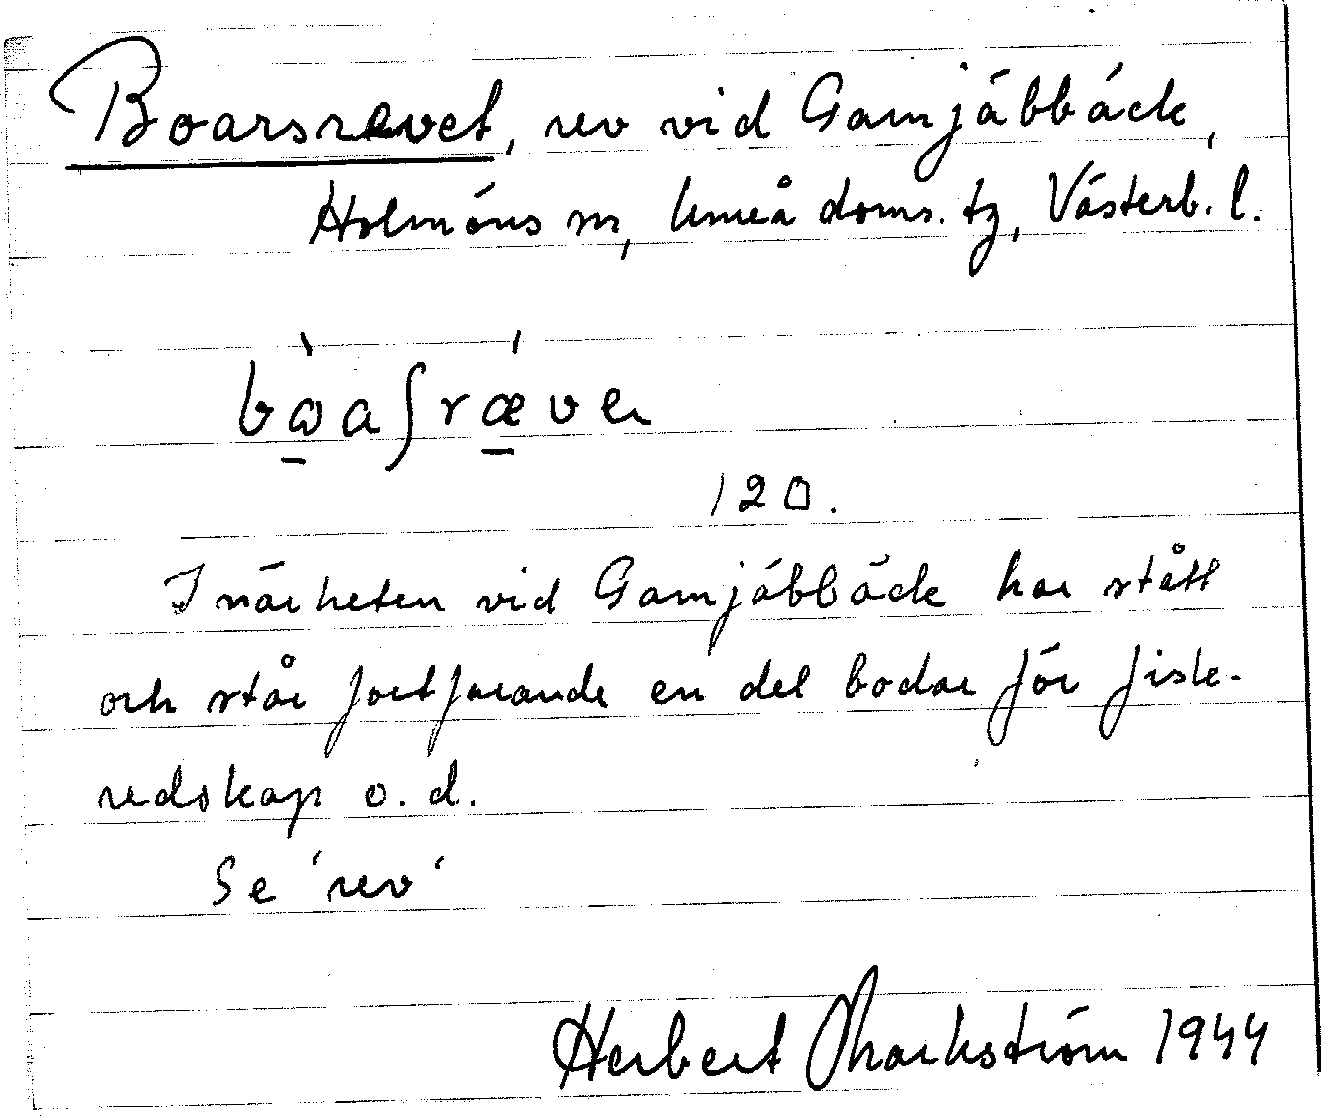 Boarsrevet, rev vid Gamjäbbäck,
Holmöns sn, Umeå doms. tg, Västerb. l.
bò̱aʃrǽ̱ven
120.
I närheten vid Gamjäbbäck har stått
och står fortfarande en del bodar för fisk-
redskap o. d.
Se 'rev'
Herbert Markström 1944